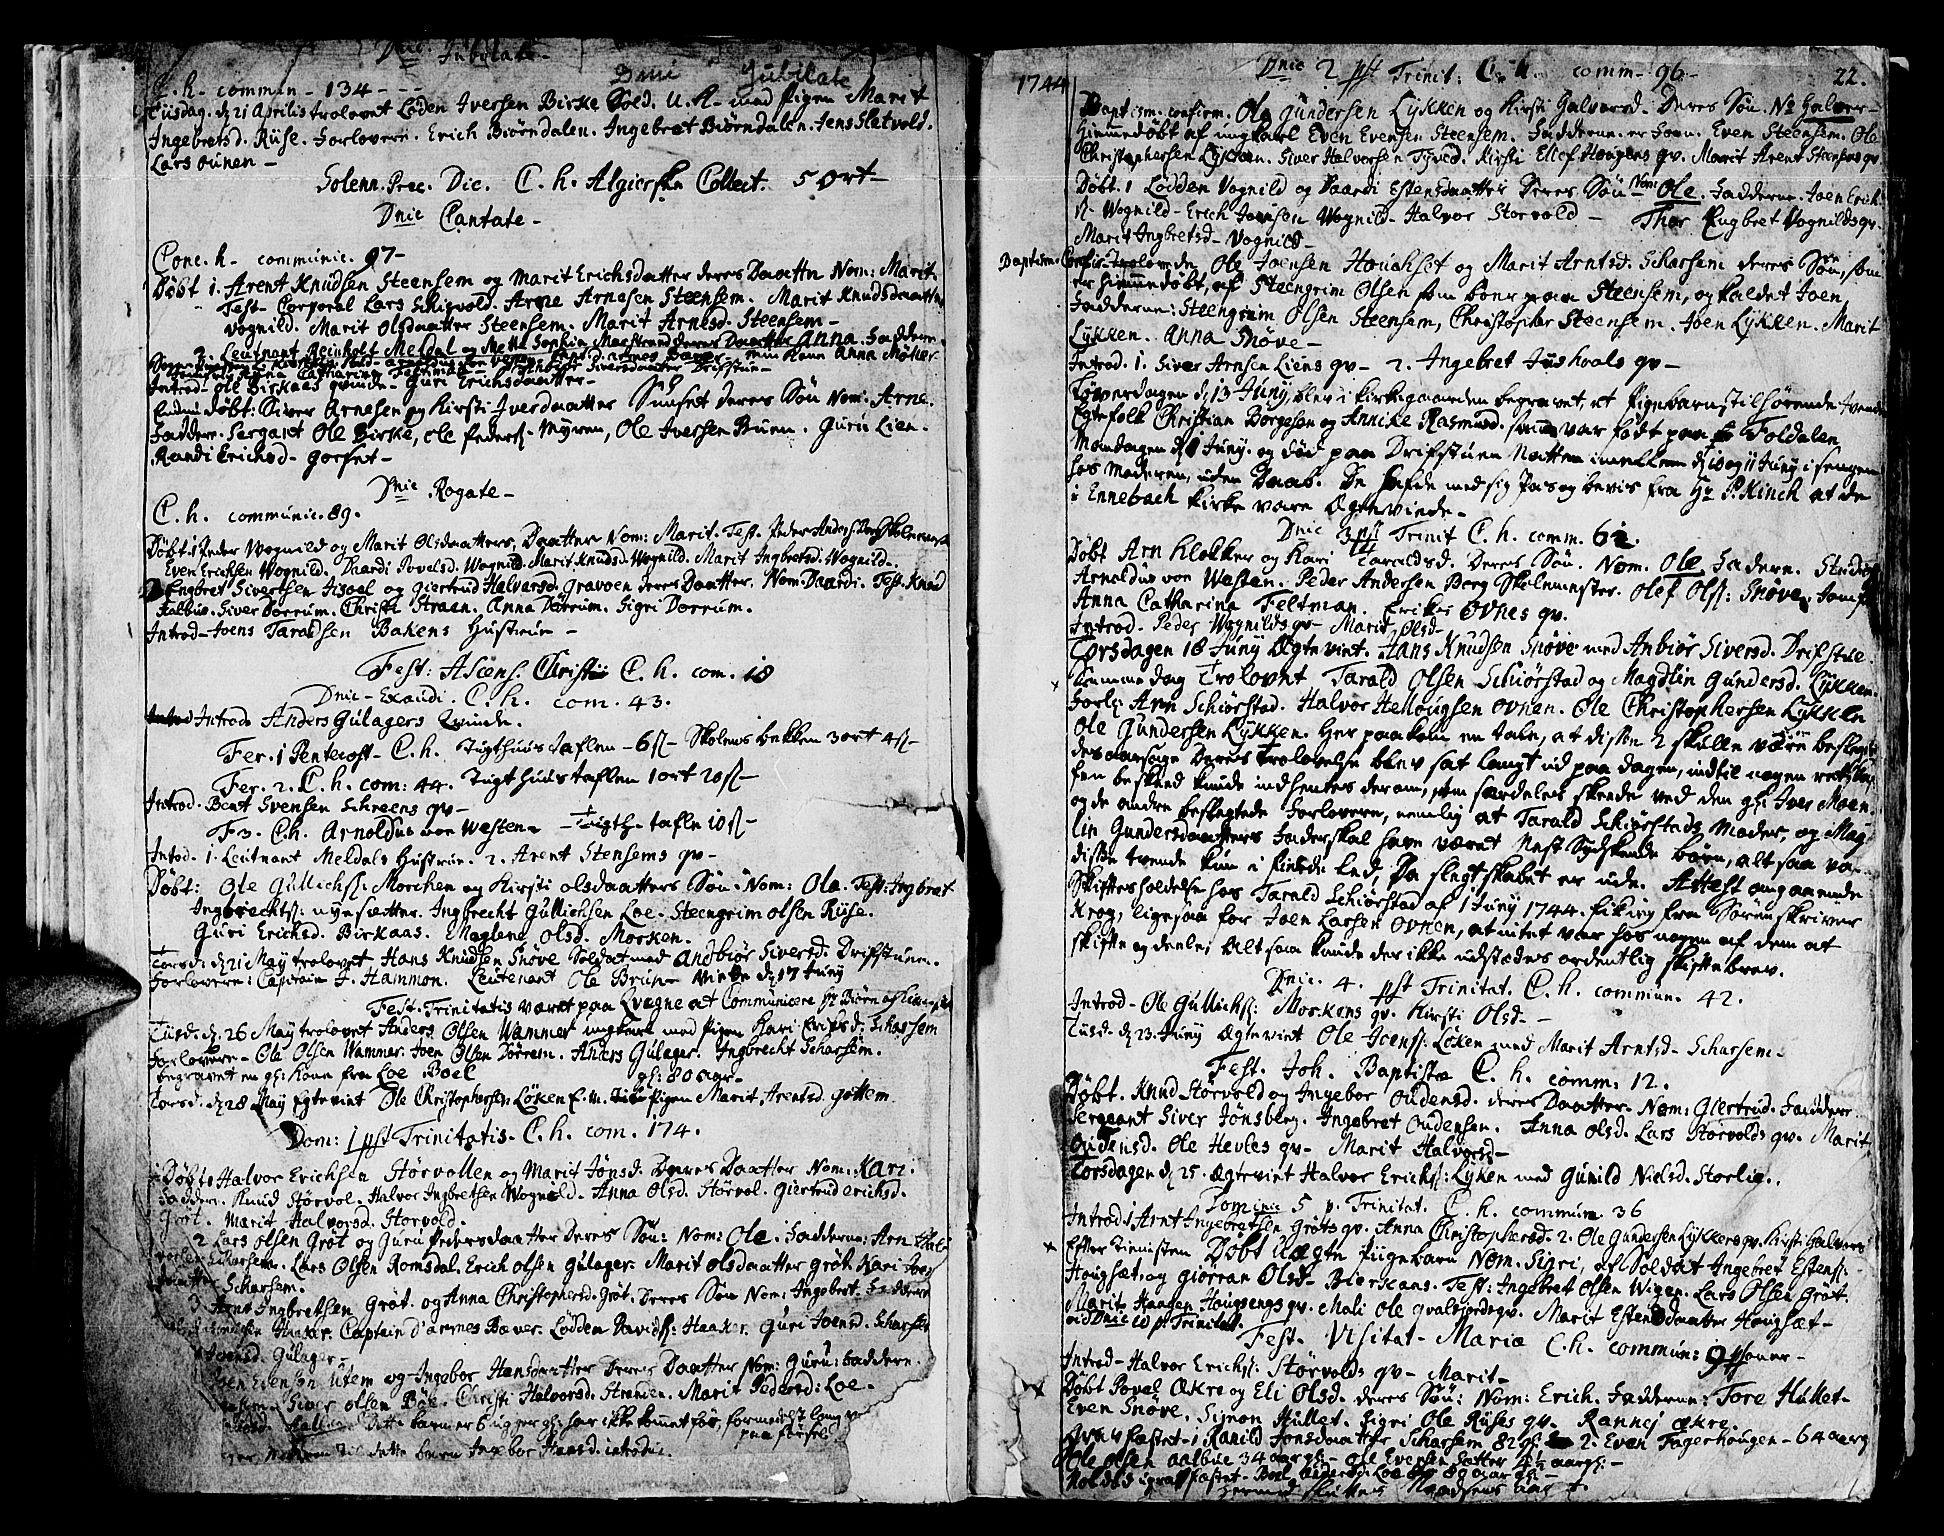 Dnic. Jubilate-
Dnic Jubilate
C. h. commun - 134 - - -
Tiisdag. d 21 Aprilis trolovet Loden Iversen Birke Sold. U. K. med Pigen Marit
Ingebretsd. Riise. Forlovere. Erich Biörndalen. Ingebret Biörndalen. Jens Sletvold.
Lars ounen -
Solenn. Prec. Die. C. h. Algierske Collect. 5 Ort-
Dnic Cantate-
Conc. h. communic. 97-
Döbt 1. Arent Knudsen Steensem og Marit Erichsdaatter deres Daatter Nom: Marit.
Test. Corporal Lars Schivold. Arne Arnesen Steensem. Marit Knudsdaatter
Vognild. Marit Olsdaatter Steensem. Marit Arnesd. Steensem-
2. Leutnant Reinholt Meldal og Mette Sophia Maestrand deres Daatter Anna. Fadder.
Introd. Ole Birkaas qvinde. Guri Erichsdaatter-
Endnu döbt. Siver Arnesen og Kirsti Iversdaatter Sunset deres Sön Nom: Arne.
Fadder. Sergant Ole Birke, Ole Peders: Myren, Ole Iversen Buen. Guru Lien.
Randi Erichsd. Gorset-
Dnic Rogate-
C. h. communic. 89.
Döbt 1 Peder Wognild og Marit Olsdaatters, Daatter Nom: Marit. Test. Peder Anders: Skolemester
Even Erichsen Wognild. Daardi Povelsd. Wognild. Marit Knudsd. Wognild. Marit Ingbretsd. Wognild.
2 Engbret Sivertsen Aisoel og Giertrud Halvorsd. Gravoen deres Daatter. Nom. Daardi. Test. Knud
Aalbue. Siver Dörrum. Christi Straen. Anna Dörrum. Sigri Dorrum.
Introd - Joens Taraldsen Bakens Hustrue -
Fest: Ascens. Christi C. h. com. 18
Dnic - Exaudi. C. h. com. 43.
Introd Anders Gulagers Qvinde.
Fer. 1 Pentecost - C. h. Tugthuus Taflen - 6 ß - Skolens bekken 3 ort 4 ß -
Fer. 2. C. h. com: 44. Tugthuus taflen 1 ort 20 ß -
Introd. Bent Svensen Schreens qv -
F. 3. C. h. Arnoldus von Westen - Tugth. tafle 10 ß -
Introd. 1. Leutnant Meldals Hustrue. 2. Arent Stensems qv -
Döbt: Ole Gullichs: Morchen og Kirsti olsdaatters Sön. Nom: Ola. Test: Ingbret
Ingbrechts: nyesætter. Ingbrecht Gullichsen Loe. Steengrim olsen Riise.
Guri Ericksd. Birkaas. Maglene Olsd. Morken.
Torsd: d 21 May trolovet Hans Knudsen Snöve Soldat med Andbiör Siversd: Drifstuen.
Forlovere: Captain J. Hammon. Leutenant Ole Brun - Viede d 17 Juny
Fest. Trinitatis været paa Qvægne at Communicere
Tiisd: d 26 May trolovet Anders Olsen Wammer ungkarl med Pigen Kari Eriksd: Scharsem
Forlovere - Ole Olsen Wammer. Joen Olsen Dörrem. Anders Gulager. Ingbrecht Scharsem.
begravet en gl: Kone fra Loe Boel gl: 80 aar -
Torsd: d 28 May egteviet Ole Christophersen Löken E. M. Pigen Marit Arentsd. Gottem.
Dom: 1 pst Trinitatis. C. h. com. 174.
Döbt 1 Halvor Erichsen Störvollen og Marit Jönsd. Deres Daatter Nom. Kari.
Fadder. Knud Störvol. Halvor Ingbretsen Wognild. Anna Olsd. Störvol. Giertrud Erichsd.
Gort. Marit Halvorsd. Storvold.
2 Lars Olsen Gröt og Guru Pedersdaatter Deres Sön: Nom: Ole. Fadderne: Arn
Scharsem. Lars Olsen Romsdal. Erich Olsen Gulager. Marit olsdaatter Gröt. Kari
Scharsem.
3 Arnt Ingbretsen Gröt. og Anna Christophersd. Gröt. Deres Sön Nom: Ingebret. Fadder
Haaker. Captein d'armes Bæver. Lödden Davids: Haaker. Guri Joensd. Scharsem
Joensd. Gulager-
Joen Evensen Utem og Ingebor Hansdaatter Deres Daatter Nom: Guru: Faddere.
Siver olsen Böe. Christi Halvorsd. Ammen. Marit Pedersd: Loe.
Dette barn er 6 uger gl: har ikke kommet för, formedelst lang vei
paa Försel
Moderen til dette barn Ingebor Haansd. introdu.
1744
Dnic 2 pst Trinit: C. h. comm - 96 -
22.
Baptism. confirm. Ole Gundersen Lykken og Kirsti Halvorsd. Deres Sön. No Halvor -
hiemmedöbt af ungkarl Even Evensen Steensem. Fadderne er Even Steensem. Ole
Christophersen Lykken. Siver Halvorsen Tyved. Kirsti Ellef Hougens qv. Marit Arent Steensems qv.
Döbt. 1 Lodden Vognild og Daardi Estensdaatter Deres Sön Nom: Ole. Fadderne. Joen Erich
ß - Wognild - Erich Joensen Wognild - Halvor Storvold - Thor Engbret Vognilds qv.
Marit Ingbretsd - Vognild -
Baptism. Confir. Trolovede Ole Joensen Houchset og Marit Arntsd. Scharsem deres Sön, som
er hiemmedöbt, af Steengrim Olsen som boer paa Steensem, og kaldet Joen,
Fadderne: Steengrim Olsen Steensem, Christopher Steensem. Joen Lykken. Marit
Lykken. Anna Snöve -
Introd. 1. Siver Arnsen Liens qv - 2. Ingebret Jushvols qv -
Löverdagen d 13 Juny, blev i kirkegaarden begravet, et Pigebarn tilhörende Tvende
Egtefolk Christian Borgesen og Annicke Rasmusd. som var födt paa Foldalen
Mandagen d 8 Juny. og död paa Drifstuen Natten imellem d 10 og 11 Juny i sengen
hos Moderen, uden Daab. De hafde med sig Pas og bevis fra Hr P. Kinch at de
i Ennebach Kirke vare Ægteviede -
Dnic 3 pst Trinit C. h. comm. 62.
Döbt Arn Klokker og Kari Taraldsd. Deres Sön. Nom. Ole Fadern. Studios
Arnoldus von Westen. Peder Andersen Berg Skolemester. Olef Ols: Snöve. Jomf
Anna Catharina Feltman. Eriks Ovnes qv.
Introd. Peder Wognilds qv - Marit Olsd -
Torsdagen 18 Juny Ægteviet. Hans Knudsen Snöve med Anbiör Siversd. Drifstue.
Samme dag Trolovet Tarald Olsen Schiörstad og Magdlin Gundersd. Lykken.
Forl: Arn Schiörstad. Halvor Hellougsen Ovnen. Ole Christophersen Lykken
Ole Gundersen Lykken. Her paakom en tale, at disse 2 skulle være beslegte
des aarsage Deres Trolovelse blev sat langt ud paa dagen, indtil nogen rettska
fen beskeed kunde indhentes derom, som særdeles skeede ved den gl: Iver Moen
og de andre beslegtede Forlovere, nemlig at Tarald Schiörstads Moder, og Mag
lin Gundersdaatters Fader skal have været Nest Sydskende börn, alt saa var
disse tvende kun i fierde Led. Da slegtskabet er ude. Attest angaaende
Skiftes holdelse hos Tarald Schiörstad af 1 Juny 1744. fik ieg fra Sörenskriver
Krog, ligesaa for Joen Larsen Ovnen, at intet var hos nogen af dem at
skifte og deele, Altsaa kunde der ikke udstædes ordentlig skiftebrev.
Dnic. 4. pst Trinitat. C. h. commun. 42.
Introd - Ole Gullichs: Morkens qv. Kirsti Olsd. -
Tiisd. d 23. Juny Ægteviet Ole Joenss: Löken med Marit Arntsd. Scharsem -
Fest. Joh. Baptistæ C. h. comm. 12.
Döbt. Knud Störvold og Ingebor Oudensd. deres Daatter. Nom: Giertrud. Fadder.
Sergeant Siver Jönsberg. Ingebret Oudensen. Anna Olsd. Lars Störvolds qv. Marit
Oudensd. Ole Hevles qv - Marit Halvorsd -
Torsdagen d 25. Ægteviet Halvor Erichs: Lyken med Gunild Nielsd. Storlie.
Dominic 5 p. Trinitat. C. h. commun. 36
Introd 1 Arnt Ingebretsen Gröts qv. Anna Christophersd. 2. Ole Gundersen Lykkens qv. Kirsti Halvors
Efter Tienisten Döbt Uægte Piigebarn Nom. Sigri, af Soldat Ingebret Estens:
Hougsæt, og Giörran Olsd. Bierkaas. Test: Ingebret Olsen Wigen. Lars Olsen Gröt.
Marit Haagen Hougsengs qv. Mali Ole Qvalsjords qv. Marit Estensdaatter Hougsæt -
vid Dnic 10 p. Trinitat.
Fest. Visitat. Mariæ C. h. commun: 9 psoner -
Introd - Halvor Erichs: Störvolds qv - Marit -
Döbt Povel Ækre og Eli Olsd. deres Sön: Nom: Erich. Fadderne: Tore Hullet.
Even Snöve. Simon Hullet. Sigri Ole Riises qv. Rannej Ækre.
Grav kastet. 1 Ranild Jonsdaatter Scharsem 82 gl. 2. Even Fagerhougen - 64 aar
Ole Olsen Aalbue 34 aar gl - Ole Evensen Sætter 4½ aar gl: -